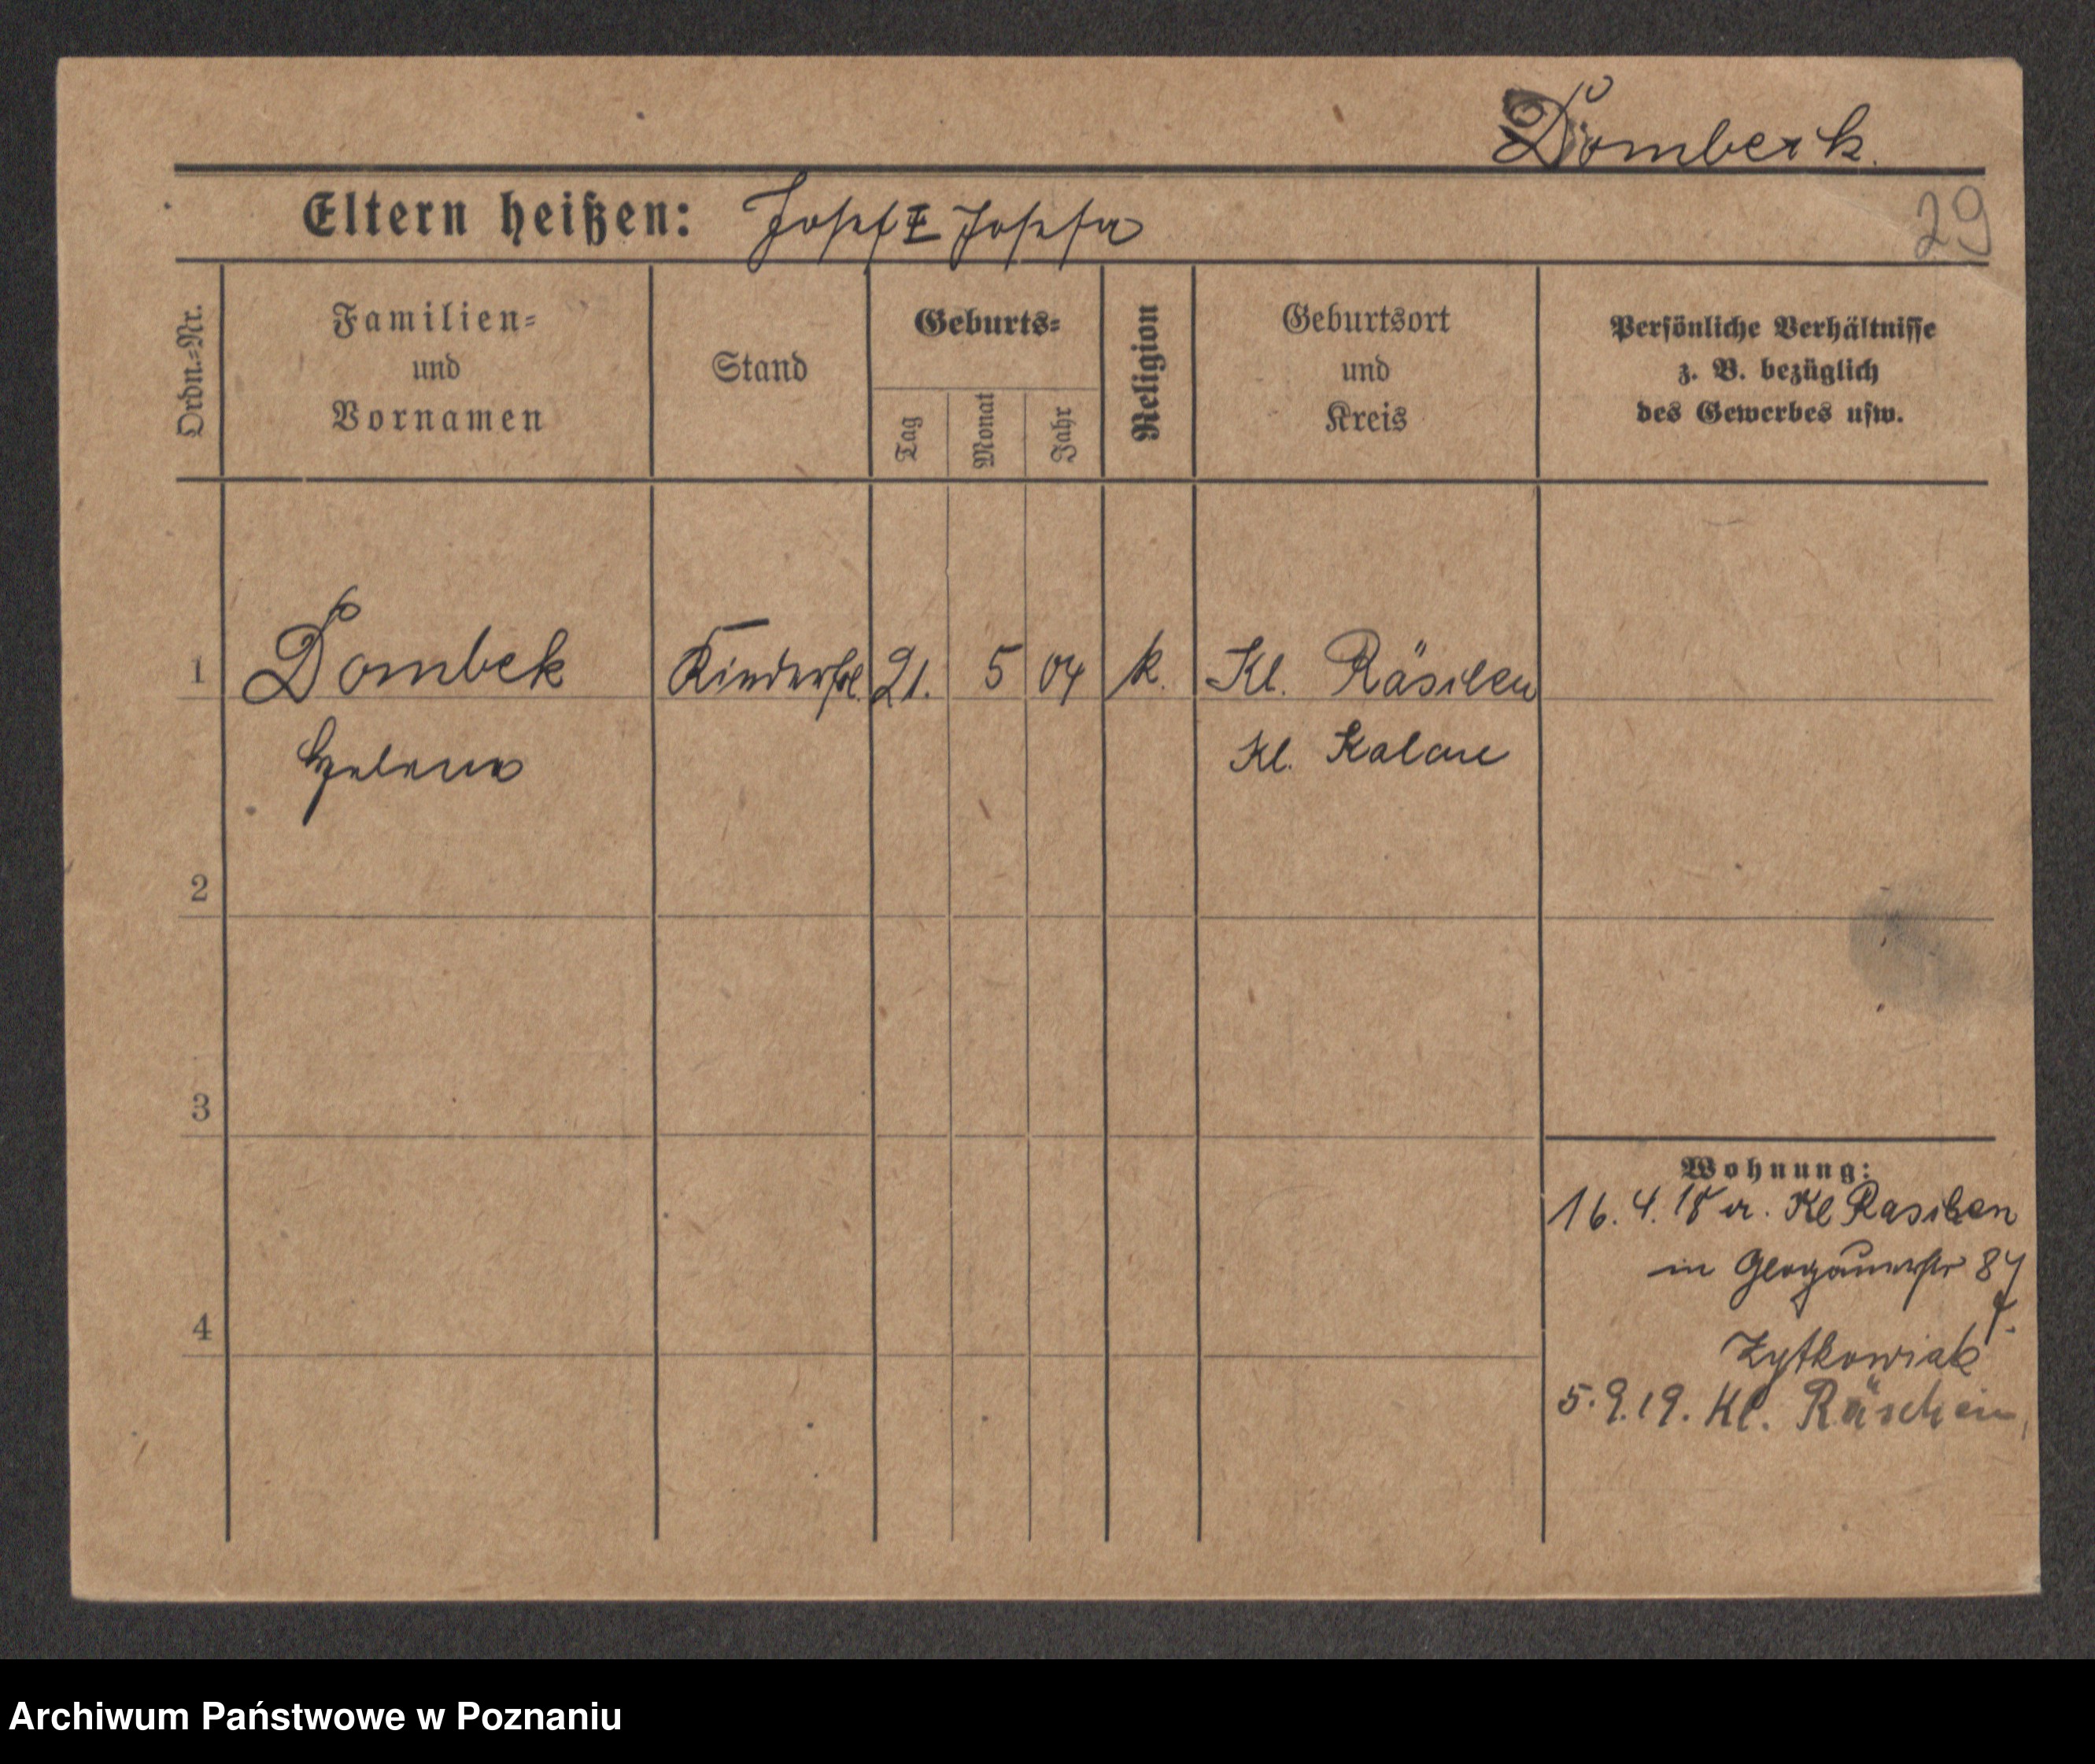 Dombeck.
Eltern heißen: Josef & Josefa
29
Ordn.=Nr.
Familien=
und
Vornamen
Stand
Geburts=
Tag
Monat
Jahr
Religion
Geburtsort
und
Kreis
Persönliche Verhältnisse
z. B. bezüglich
des Gewerbes usw.
1 Dombek Kinderfrl. 21. 5 04 k. Kl. Räschen
Helena Kl. Kalau
2
3
4
Wohnung:
16. 4. 18 v. Kl Raschen
in Glogauerstr 87
Zytkowiak
5. 9. 19. Kl. Räschen
Archiwum Państwowe w Poznaniu